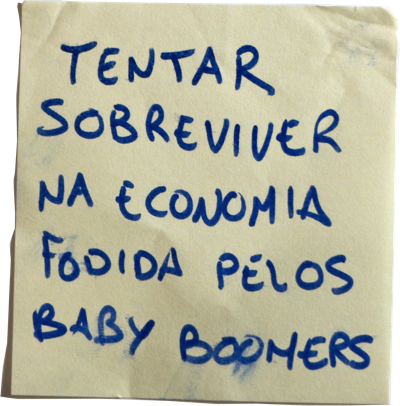 TENTAR
SOBREVIVER
NA ECONOMIA
FODIDA PELOS
BABY BOOMERS